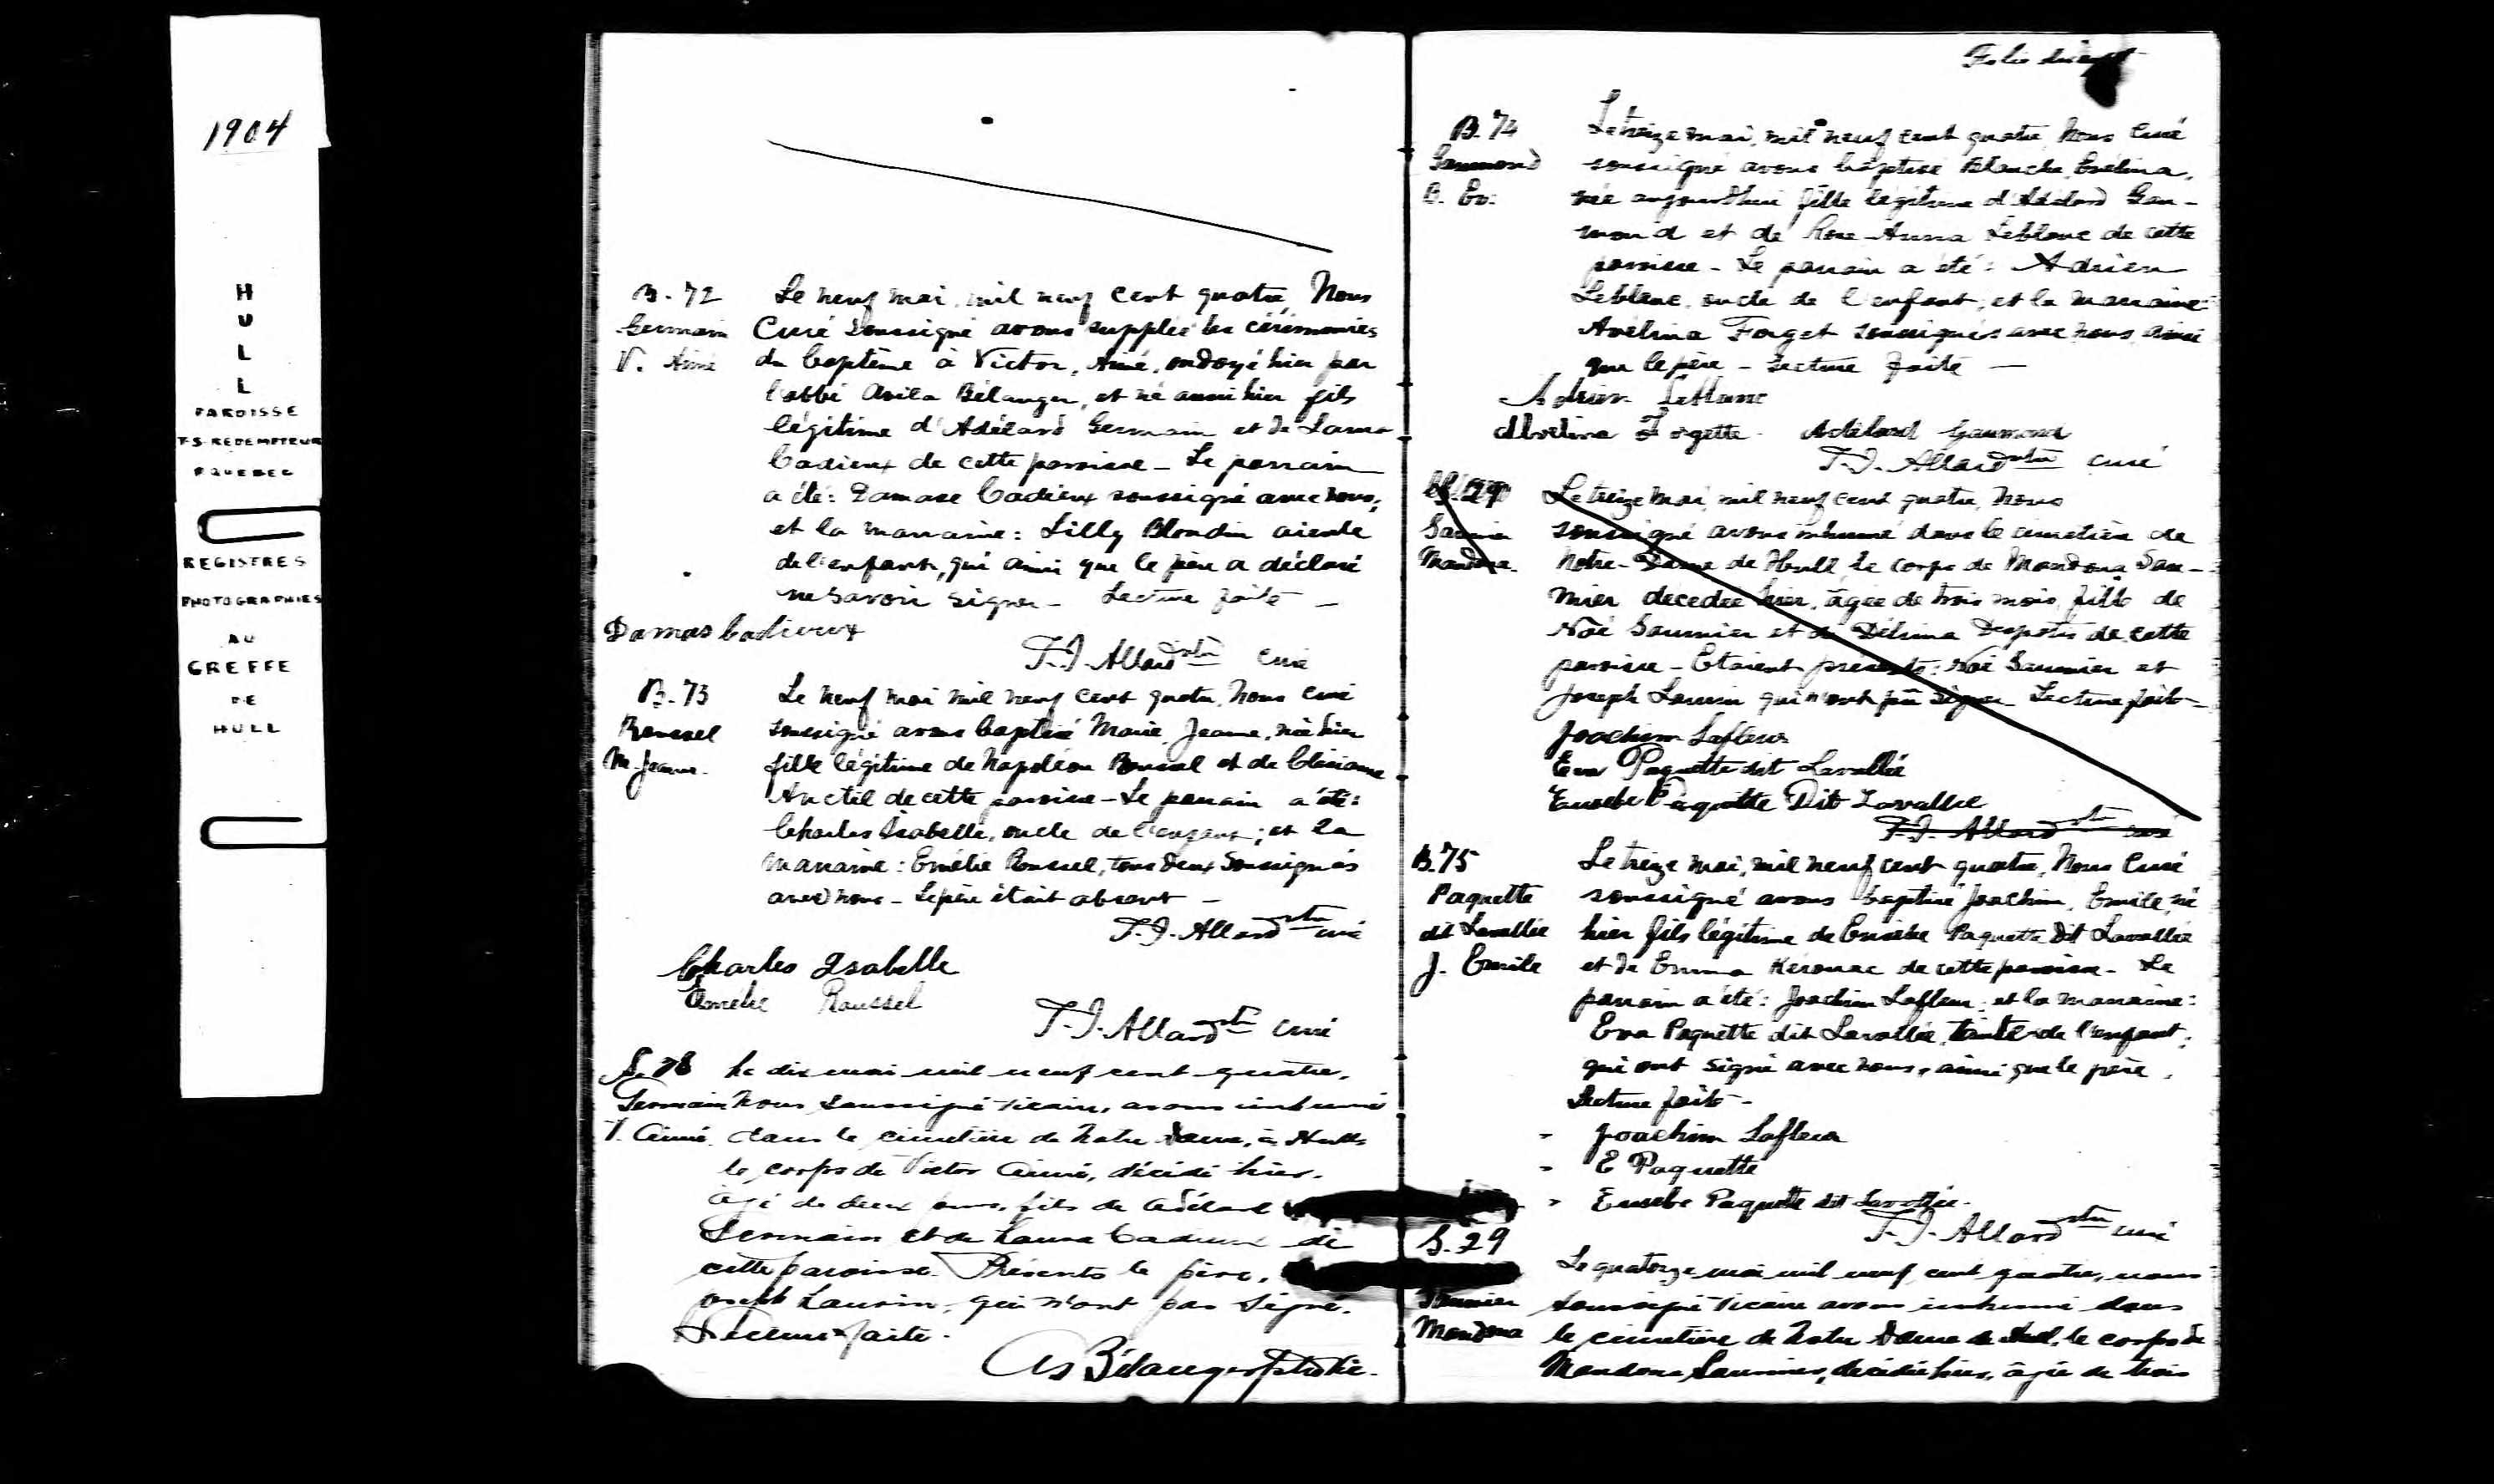 1904
H
U
L
L
PAROISSE
T-S-REDEMPTEUR
P QUEBEC
REGISTRES
PHOTOGRAPHIES
AU
GREFFE
DE
HULL
B. 72
Germain
V. Aimé
Le neuf mai, mil neuf cent quatre, Nous
Curé soussigné avons supplée les cérémonies
du baptême à Victor, Aimé, ondoyé hier par
l'abbé Avila Bélanger, et né aussi hier fils
légitime d'Adélard Germain et de Laura
Cadieux de cette paroisse - Le parrain
a été: Damase Cadieux soussigné avec nous,
et la marraine: Lilly Blondin
de l'enfant, qui ainsi que le père a déclaré
ne savoir signer - Lecture faite -
Damas Cadieux
T. J. Allard ptre curé
B. 73
Roussel
M. Jeanne.
Le neuf mai mil neuf cent quatre, Nous curé
soussigné avons baptisé Marie, Jeanne, née hier
fille légitime de Napoléon Roussel et de
Anctil de cette paroisse - Le parrain a été:
Charles Isabelle, oncle de l'enfant; et la
marraine: Emélie Roussel, tous deux soussignés
avec nous - Le père était absent -
T. J. Allard ptre curé
Charles Isabelle
Emélie Roussel
T. J. Allard ptre curé
S. 28
Germain
V. Aimé.
Le dix mai mil neuf cent quatre,
Nous soussigné vicaire, avons inhumé
dans le cimetière de Notre Dame, à Hull
le corps de Victor Aimé, décédé hier,
âgé de deux jours, fils de Adélard
Germain et de Laura Cadieux de
cette paroisse. Présents le père,
Lauzin, qui n'ont pas signé.
Lecture faite.
As Bélanger ptre vic.
Folio
B. 74
Gaumond
B. Ev.
Le treize mai, mil neuf cent quatre, Nous Curé
soussigné avons baptisé Blanche, Evélina,
née aujourd'hui fille légitime d'Adélard Gau-
mond et de Rose-Anna Leblanc de cette
paroisse - Le parrain a été: Adrien
Leblanc, oncle de l'enfant, et la marraine:
Avelina Forget soussignés avec nous, ainsi
que le père - Lecture faite -
Adrien Leblanc
Avelina Forgette. Adélard Gaumond
T. J. Allard ptre curé
S. 29
Saumier
Mandona.
Le treize mai, mil neuf cent quatre, Nous
soussigné avons inhumé dans le cimetière de
Notre-Dame de Hull, le corps de Mandona Sau-
mier décédée hier, âgée de trois mois, fille de
Noé Saumier et de Délima de cette
paroisse - Etaient présents: Noé Saumier et
Joseph Lauzin qui n'ont pu signer - Lecture faite -
Joachim Lafleur
Eva Paquette dit Lavallée
Eusebe Paquette Dit Lavallee
T. J. Allard ptre curé
B. 75
Paquette
dit Lavallée
J. Emile
Le treize mai, mil neuf cent quatre, Nous Curé
soussigné avons baptisé Joachim, Emile, né
hier fils légitime de Eusèbe Paquette dit Lavallée
et de Emma Kérouac de cette paroisse. Le
parrain a été: Joachim Lafleur, et la marraine:
Eva Paquette dit Lavallée, tante de l'enfant,
qui ont signé avec nous, ainsi que le père.
Lecture faite -
Joachim Lafleur
E Paquette
Eusebe Paquette dit Lavallée.
T. J. Allard ptre curé
S. 29
Saumier
Mandona
Le quatorze mai mil neuf cent quatre, nous
soussigné vicaire avons inhumé dans
le cimetière de Notre Dame de Hull, le corps de
Mandona Saumier, décédée hier, âgée de trois